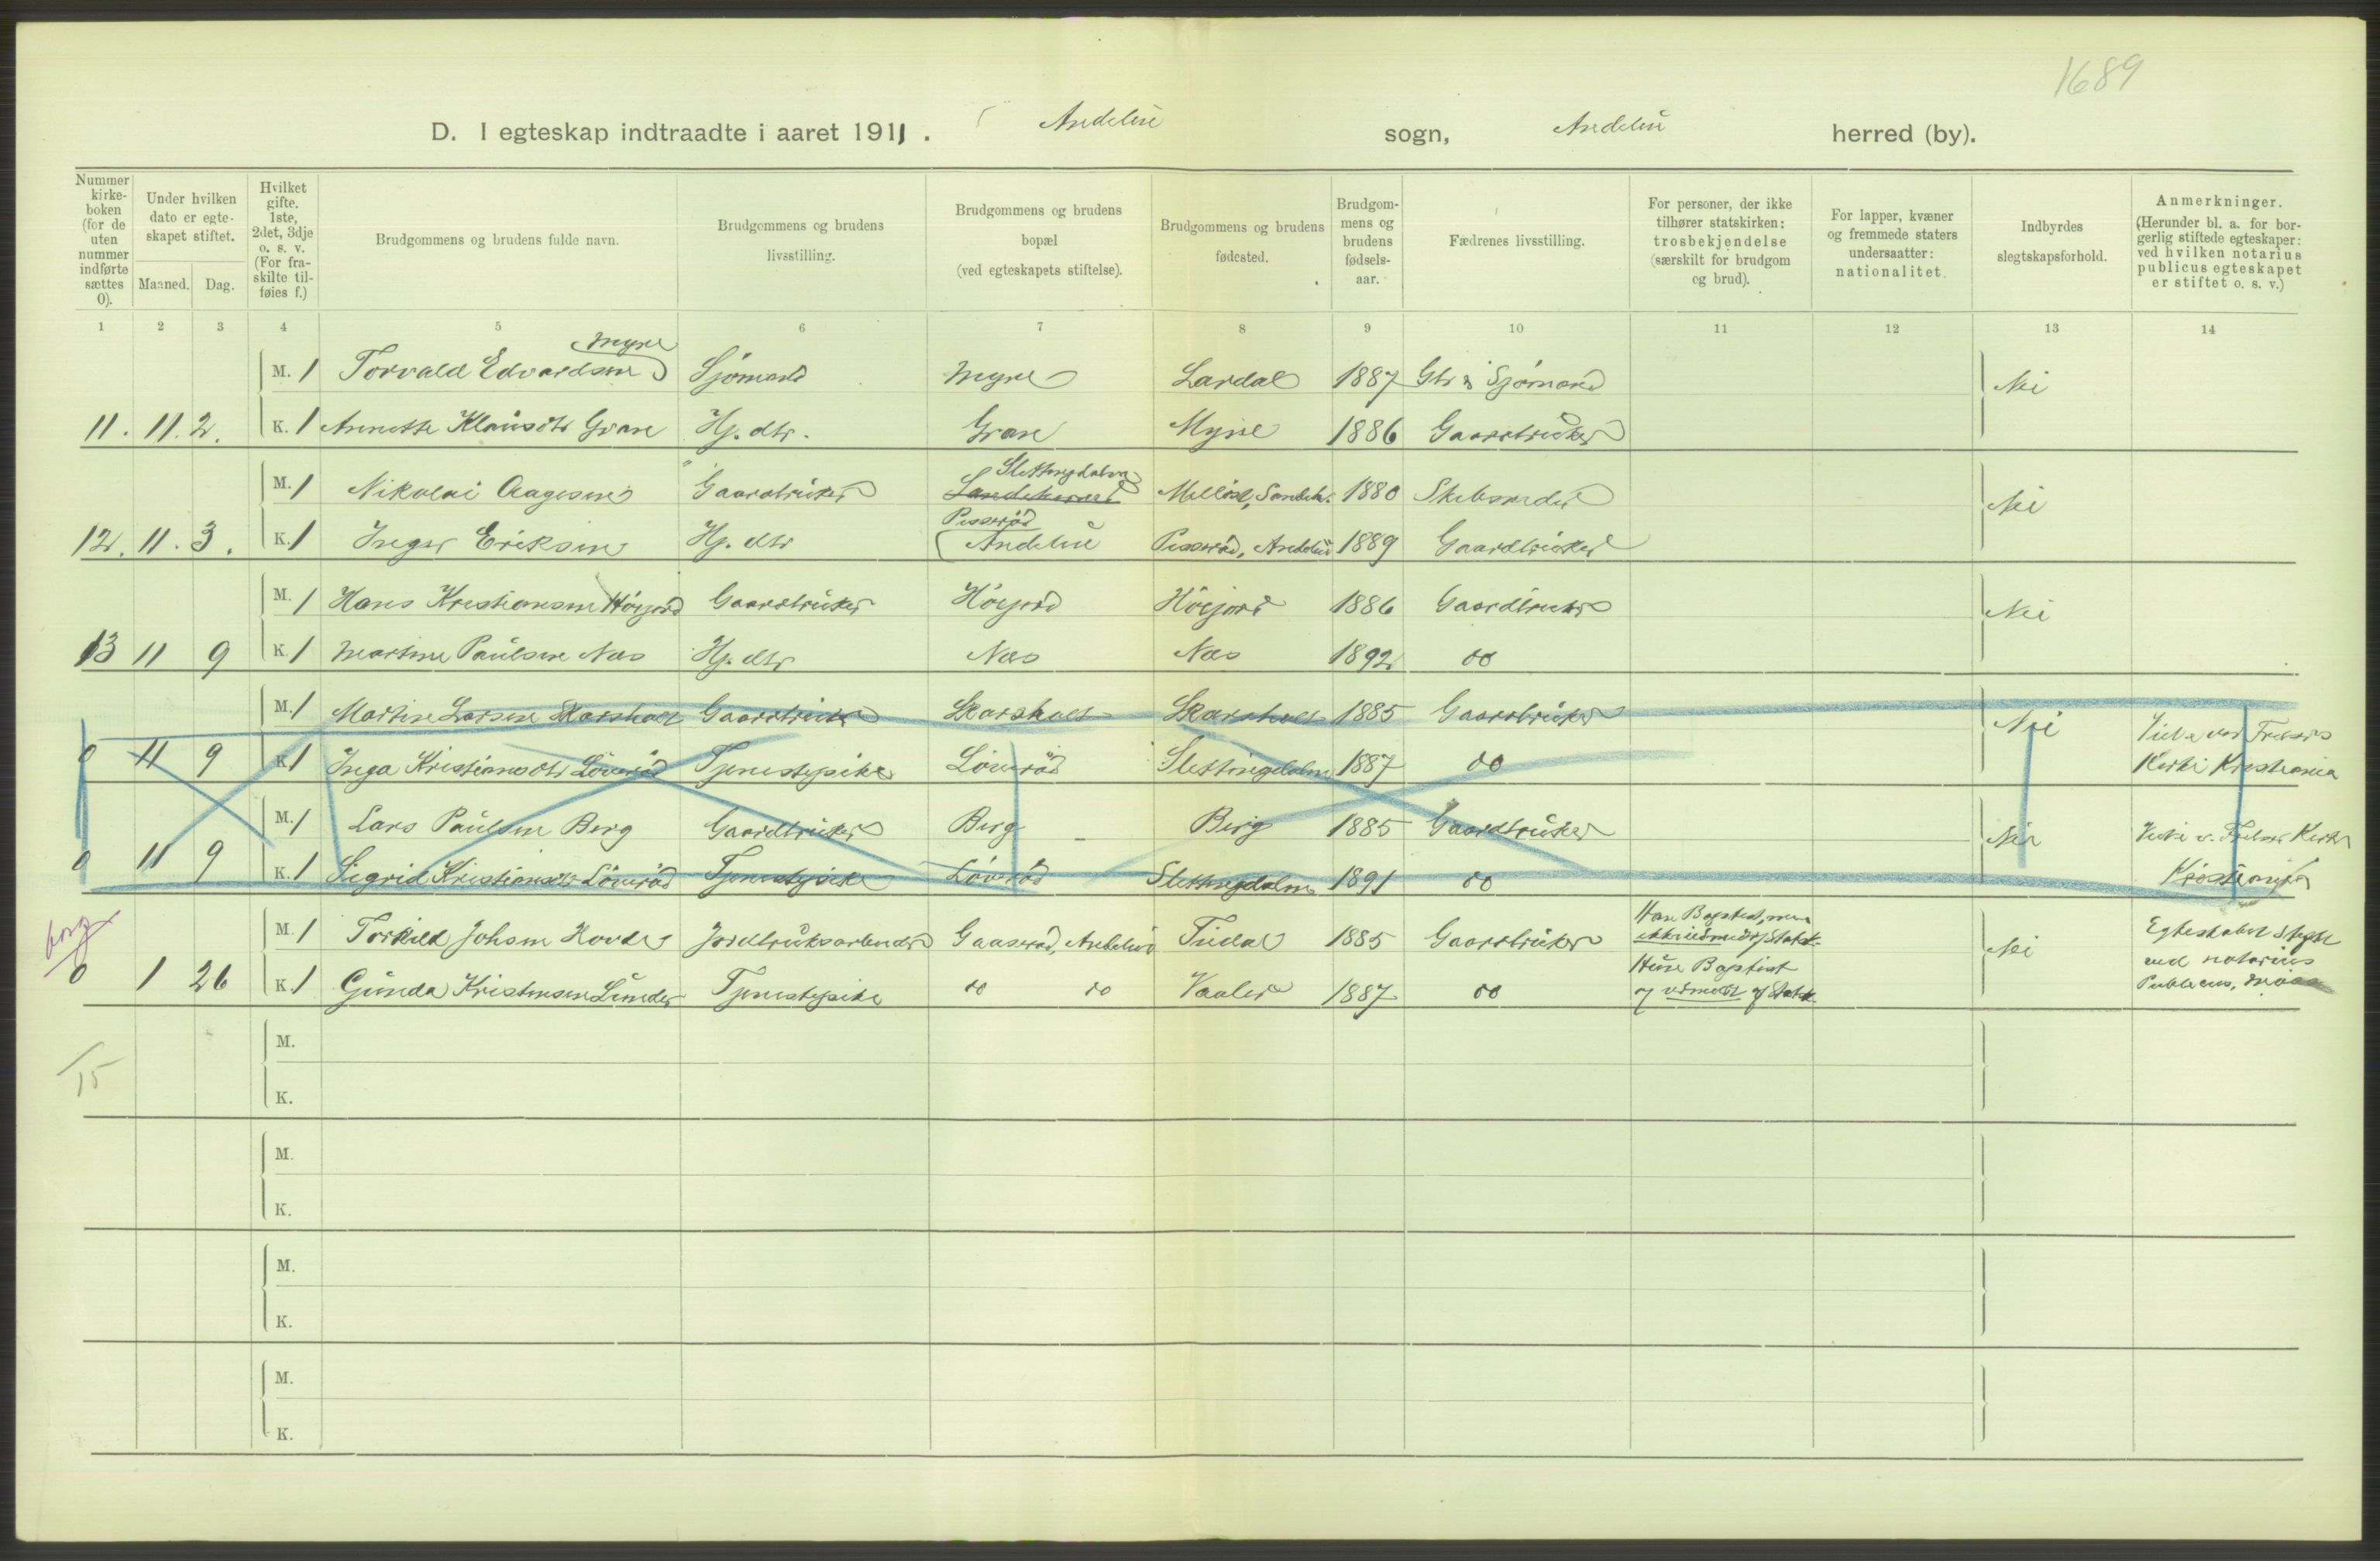 1689
D. I egteskap indtraadte i aaret 1911. Andebu sogn, Andebu herred (by).
Nummer kirkeboken (for de uten nummer indførte sættes 0).
Under hvilken dato er egteskapet stiftet.
Maaned. Dag.
Hvilket gifte. 1ste, 2det, 3dje o. s. v. (For fraskilte tilføies f.)
Brudgommens og brudens fulde navn.
Brudgommens og brudens livsstilling.
Brudgommens og brudens bopæl (ved egteskapets stiftelse).
Brudgommens og brudens fødested.
Brudgommens og brudens fødselsaar.
Fædrenes livsstilling.
For personer, der ikke tilhører statskirken: trosbekjendelse (særskilt for brudgom og brud).
For lapper, kvæner og fremmede staters undersaatter: nationalitet.
Indbyrdes slegtskapsforhold.
Anmerkninger. (Herunder bl. a. for borgerlig stiftede egteskaper: ved hvilken notarius publicus egteskapet er stiftet o. s. v.)
1 2 3 4 5 6 7 8 9 10 11 12 13 14
Myre
M. 1 Torvald Edvardsen Sjømand Myre Lardal 1887 Gbr & Sjømand Nei
11. 11. 2. K. 1 Annette Klausdtr Gran Hj. dtr. Gran Myre 1886 Gaardbruker
Slettingdalen
M. 1 Nikolai Aagesen Gaardbruker Sandeherred Melløst, Sandeh. 1880 Skibsreder Nei
Pisserød
12. 11. 3. K. 1 Inger Eriksen Hj. dtr Andebu Pisserød, Andebu 1889 Gaardbruker
M. 1 Hans Kristiansen Höyjord Gaardbruker Höyjord Höyjord 1886 Gaardbruker Nei
13 11 9 K. 1 Martine Paulsen Næs Hj. dtr Næs Næs 1892 do
M. 1 Martin Larsen Skarsholt Gaardbruker Skarsholt Skarsholt 1885 Gaardbruker Nei Viet ved Frelsers
0 11 9 K. 1 Inga Kristiansdtr Löverød Tjenestepike Löverød Slettingdalen 1887 do Kirke Kristiania
M. 1 Lars Paulsen Berg Gaardbruker Berg Berg 1885 Gaardbruker Nei Viet v. Frelser Kirke
0 11 9 K. 1 Sigrid Kristiansdtr Löverød Tjenestepike Löverød Slettingdalen 1891 do Kristiania
borg
M. 1 Torkild Johsen Hovde Jordbruksarbeider Gaaserød, Andebu 1885 Gaardbruker Han Baptist, men ikke udmeldt af Statsk. Nei Egteskabet stiftet
0 1 26 K. 1 Gunda Kristensen Linde Tjenestepike do do Vaaler 1887 do Hun Baptist og udmeldt af Statsk. ved notarius Publicus,
15
M.
K.
M.
K.
M.
K.
M.
K.